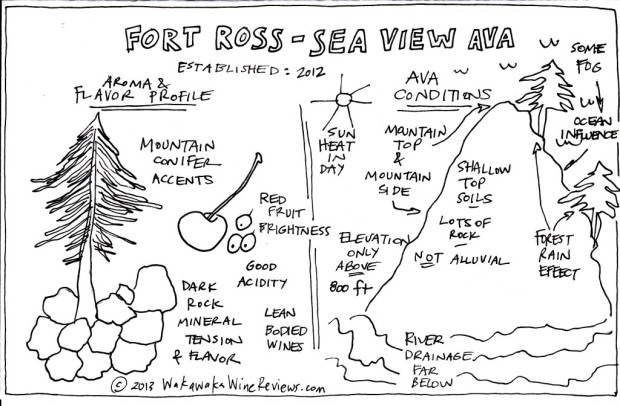 FORT ROSS - SEA VIEW AVA
ESTABLISHED: 2012
AROMA &
FLAVOR PROFILE
MOUNTAIN
CONIFER
ACCENTS
RED
FRUIT
BRIGHTNESS
GOOD
ACIDITY
DARK
ROCK
MINERAL
TENSION
& FLAVOR
LEAN
BODIED
WINES
© 2013 WakawakaWineReviews.com
AVA
CONDITIONS
SUN
HEAT IN
DAY
MOUNTAIN
TOP
&
MOUNTAIN
SIDE
ELEVATION
ONLY
ABOVE
800 ft
SHALLOW
TOP
SOILS
LOTS OF
ROCK
NOT ALLUVIAL
SOME
FOG
OCEAN
INFLUENCE
FOREST
RAIN
EFFECT
RIVER
DRAINAGE
FAR
BELOW